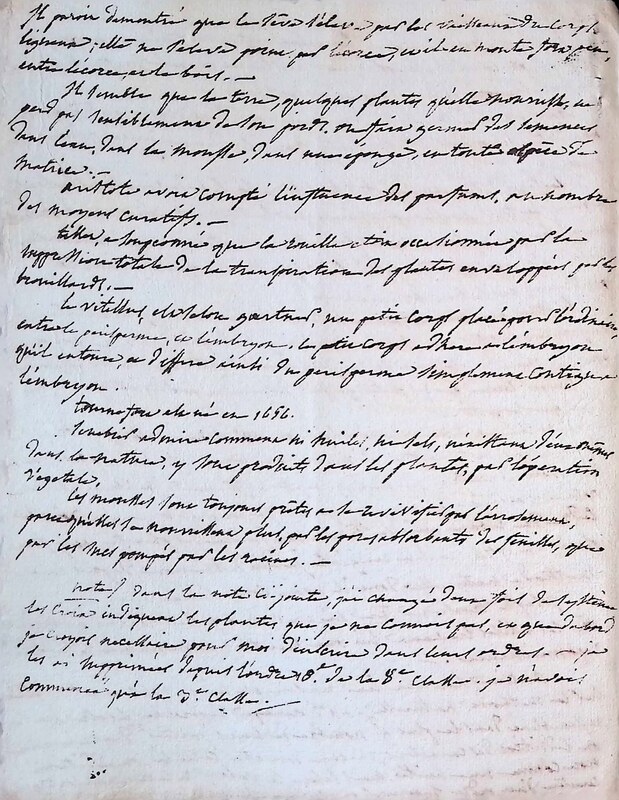 Il paroir demontré que la sève s'élève par les vaisseaux du corps
ligneux; elle ne s'eleve point par l'écorce, et il en monte fort peu
entre l'écorce, et le bois. —
Il semble que la terre, quelques plantes qu'elle nourrisse, ne
perd pas sensiblement de son poids. on fait germer des semences
dans l'eau, dans la mousse, dans une eponge, en toute espèce de
matière. —
aristote avoit compté l'influence des parfums, au nombre
des moyens curatifs. —
tillet a soupçonné que la rouille etoit occasionnée par la
suppression totale de la transpiration des plantes enveloppées par les
brouillards. —
Le vitellus, est selon gaertner, un petit corps placé pour l'ordinaire,
entre le perisperme, et l'embryon. le petit corps adhere a l'embryon
qu'il entoure, et differe ainsi du perisperme simplement contigu a
l'embryon.
tournefort est né en 1656.
Senebier admire comment ni huiles, ni sels, n'existant d'eux mêmes
dans la nature, y sont produits dans les plantes, par l'operation
vegetale.
Les mousses sont toujours prêtes a se revivifier par l'arrosement,
parcequ'elles se nourrissent plus par les pores absorbants des feuilles, que
par les sucs pompés par les racines. —
nota) dans la note ci-jointe, j'ai changé deux fois de système
les croix indiquent les plantes que je ne connois pas, et que d'abord
je croyois necessaire pour moi d'inscrire dans leurs ordres. — je
les ai supprimées depuis l'ordre 18e de la 8e classe. je n'avois
commencé qu'a la 3e classe. —